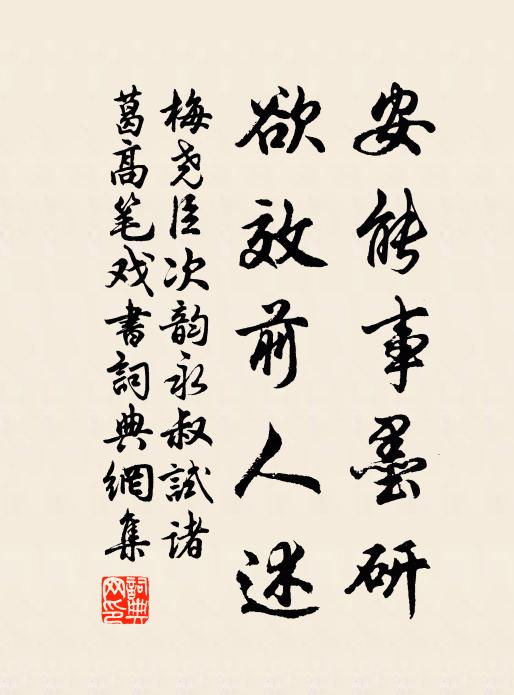 安能事墨研
欲效前人述
梅尧臣次韵永叔試诸
葛高笔戏書詞典網集
詞典网印